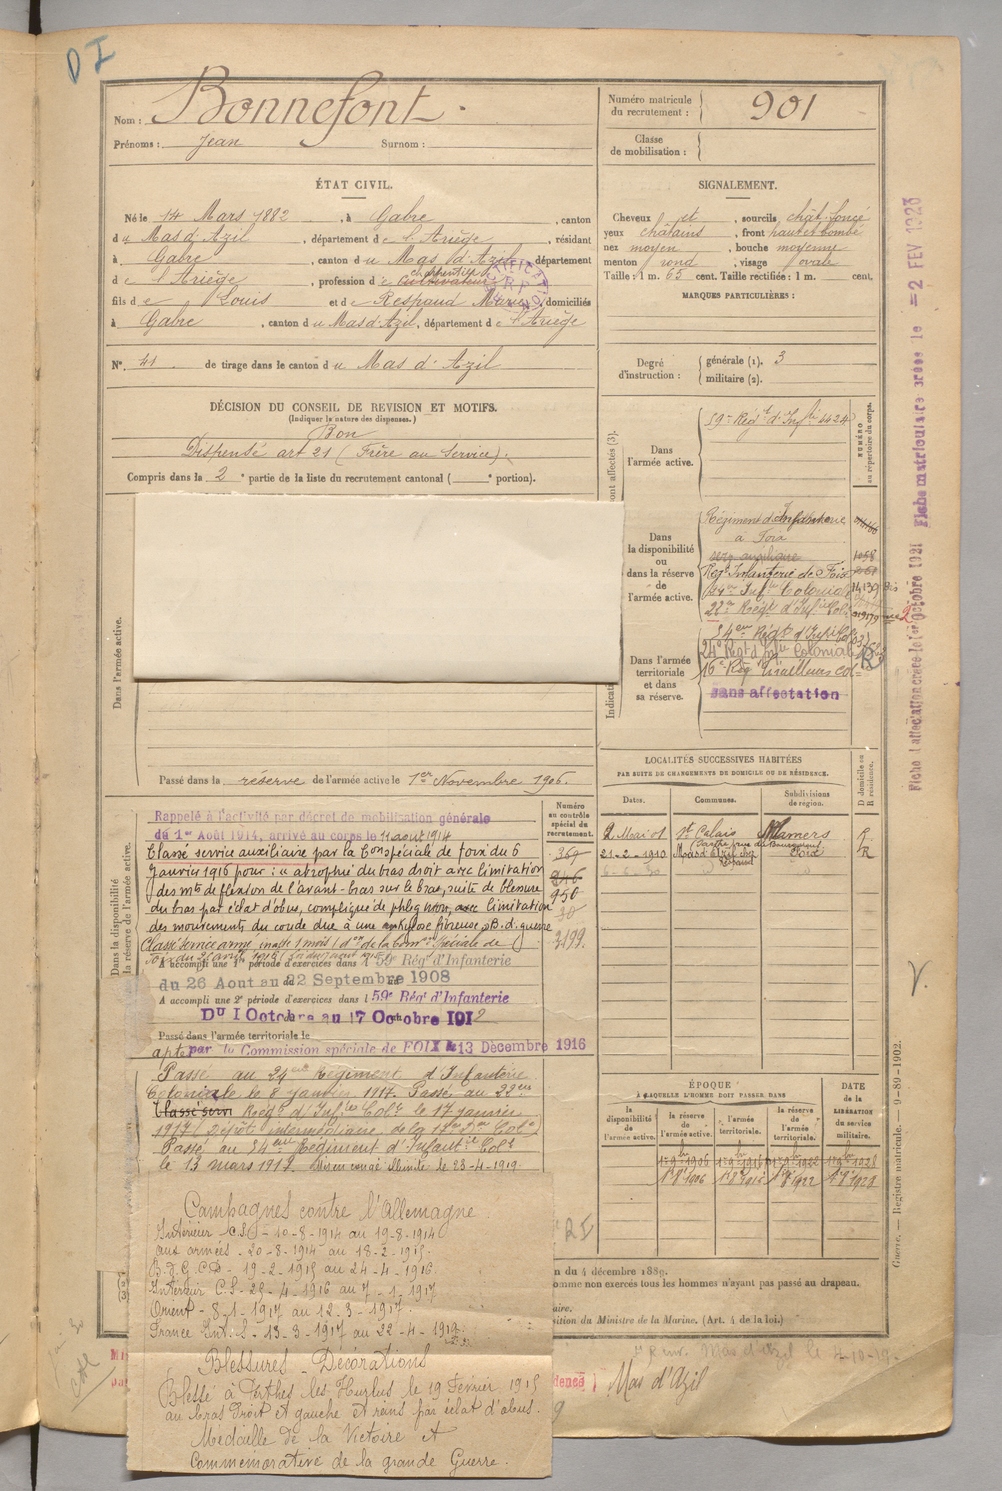 D I
Nom : Bonnefont
Prénoms : Jean Surnom :
Numéro matricule du recrutement : 901
Classe de mobilisation :
ÉTAT CIVIL.
Né le 14 Mars 1882, à Gabre, canton
du Mas d'Azil, département de l'Ariège, résidant
à Gabre, canton du Mas d'Azil, département
de l'Ariège, profession de charpentier cultivateur
fils de Louis et de Respaud Marie, domiciliés
à Gabre, canton du Mas d'Azil, département de l'Ariège
N° 41 de tirage dans le canton du Mas d'Azil
SIGNALEMENT.
Cheveux et, sourcils chât. foncé
yeux châtains, front haut et bombé
nez moyen, bouche moyenne
menton rond, visage ovale
Taille : 1 m. 65 cent. Taille rectifiée : 1 m. cent.
MARQUES PARTICULIÈRES :
Degré d'instruction : générale (1). 3
militaire (2).
DÉCISION DU CONSEIL DE REVISION ET MOTIFS.
(Indiquer la nature des dispenses.)
Bon
Dispensé art 21 (Frère au Service).
Compris dans la 2e partie de la liste du recrutement cantonal ( e portion).
NUMÉRO au répertoire du corps.
Dans l'armée active. 59e Régt d'Infie 4424
Dans la disponibilité ou dans la réserve de l'armée active.
Régiment d'Infanterie
à Foix
serv auxiliaire 1058
Regt Infanterie de Foix
24me Infie Coloniale
22me Régt d'Infie Cole
Dans l'armée territoriale et dans sa réserve.
54eme Régt d'Infie Cole
24e Régt d'Infie Coloniale
16e Rég Tirailleurs col=
Sans affectation
Dans l'armée active.
Passé dans la réserve de l'armée active le 1er Novembre 1906.
Dans la disponibilité
la réserve de l'armée active.
Numéro au contrôle spécial du recrutement.
369
246
950
30
3199
Rappelé à l'activité par décret de mobilisation générale
du 1er Août 1914, arrivé au corps le 11 août 1914
Classé service auxiliaire par la Con spéciale de Foix du 6
Janvier 1916 pour : "atrophie du bras droit avec limitation
des mts de flexion de l'avant-bras sur le bras, suite de blessure
du bras par éclat d'obus, compliqué de phlegmon, avec limitation
des mouvements du coude due à une ankylose fibreuse, B. d. guerre
Classé service armé, inapte 1 mois
A accompli une 1re période d'exercices dans l 59e Rég' d'Infanterie
du 26 Aout au 22 Septembre 1908
A accompli une 2e période d'exercices dans l 59e Rég' d'Infanterie
DU 1 Octobre au 17 Octobre 1912
Passé dans l'armée territoriale le
apte par la Commission spéciale de FOIX le 13 Décembre 1916
Passé au 24eme Régiment d'Infanterie
Coloniale le 8 janvier 1917. Passé au 22eme
Classé serv Régt d'Infie Cole le 17 janvier
1917 (Dépôt intermédiaire de la 17e Don Cole)
Passé au 54eme Régiment d'Infantie Cole
le 13 mars 1917. Mis en congé illimité le 23-4-1919.
LOCALITÉS SUCCESSIVES HABITÉES
PAR SUITE DE CHANGEMENTS DE DOMICILE OU DE RÉSIDENCE.
Dates. Communes. Subdivisions de région. D domicile ou R résidence.
2 Mai 01 St Calais Mamers R
21-2-1910 Mas d'Azil Foix R
ÉPOQUE
À LAQUELLE L'HOMME DOIT PASSER DANS
la disponibilité de l'armée active. la réserve de l'armée active. l'armée territoriale. la réserve de l'armée territoriale.
DATE de la LIBÉRATION du service militaire.
1er 9bre 1906 1er 9bre 1916 1er 9bre 1922 1er 9bre 1928
Campagnes contre l'Allemagne.
Intérieur C.S. - 10-8-1914 au 19-8-1914
aux armées - 20-8-1914 au 18-2-1915.
B.d.G. CD - 19-2-1915 au 24-4-1916.
Intérieur C.S - 25-4-1916 au 7-1-1917
Orient - 8-1-1917 au 12-3-1917.
France Int: S - 13-3-1917 au 22-4-1919.
Blessures - Décorations
Blessé à Perthes les Hurlus le 19 Février 1915
au bras droit et gauche et reins par éclat d'obus.
Médaille de la Victoire et
Commémorative de la grande Guerre.
RI
n du 4 décembre 1889.
omme non exercés tous les hommes n'ayant pas passé au drapeau.
aire.
sition du Ministre de la Marine. (Art. 4 de la loi.)
Mas d'Azil le 4-10-19
dence Mas d'Azil
Guerre. — Registre matricule. — 9-89-1902.
Fiche matriculaire créée le = 2 FEV 1923
V.